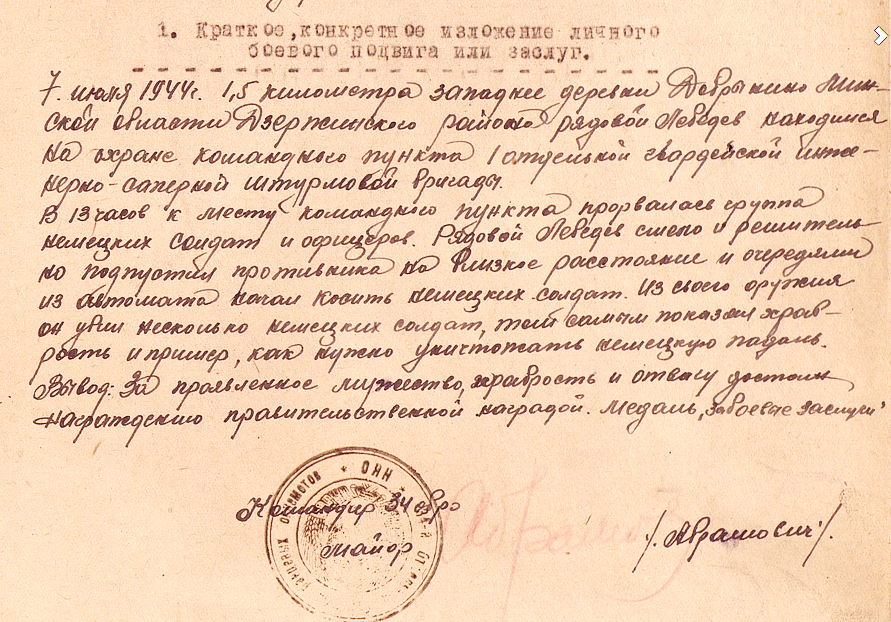 1. Краткое, конкретное изложение личного
боевого подвига или заслуг.
7. июля 1944г. 1,5 километра западнее деревни Добрынино Мин-
ской области Дзержинского района рядовой Лебедев находился
на охране командного пункта 1 отдельной гвардейской инже-
нерно-саперной штурмовой бригады.
В 13 часов к месту командного пункта прорвалась группа
немецких солдат и офицеров. Рядовой Лебедев смело и решитель-
но подпустил противника на близкое расстояние и очередями
из автомата начал косить немецких солдат. Из своего оружия
он убил несколько немецких солдат, тем самым показал храб-
рость и пример, как нужно уничтожать немецкую падаль.
Вывод: За проявленное мужество, храбрость и отвагу достоин
награждению правительственной наградой. Медаль "за боевые заслуги"
Командир 34
Майор
/.Абрамович./
ранцевых огнеметов * ОНН *